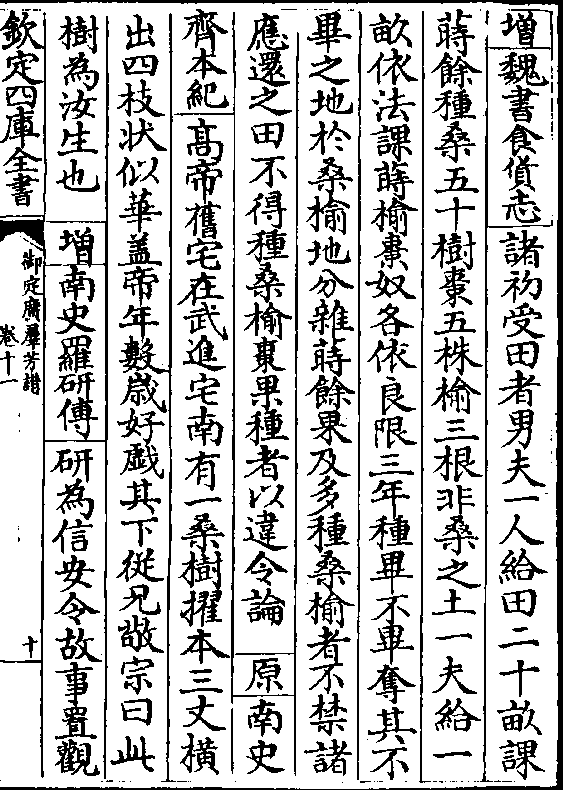 增魏書食貨志諸初受田者男夫一人給田二十畝課
蒔餘種桑五十樹棗五株榆三根非桑之土一夫給一
畝依法課蒔榆棗奴各依良限三年種畢不畢奪其不
畢之地於桑榆地分雜蒔餘果及多種桑榆者不禁諸
應還之田不得種桑榆棗果種者以違令論原南史
齊本紀高帝舊宅在武進宅南有一桑樹擢本三丈橫
出四枝狀似華盖帝年數歲好戲其下從兄敬宗曰此
樹為汝生也增南史羅研傳研為信安令故事置觀
欽定四庫全書
御定廣羣芳譜
卷十一
十